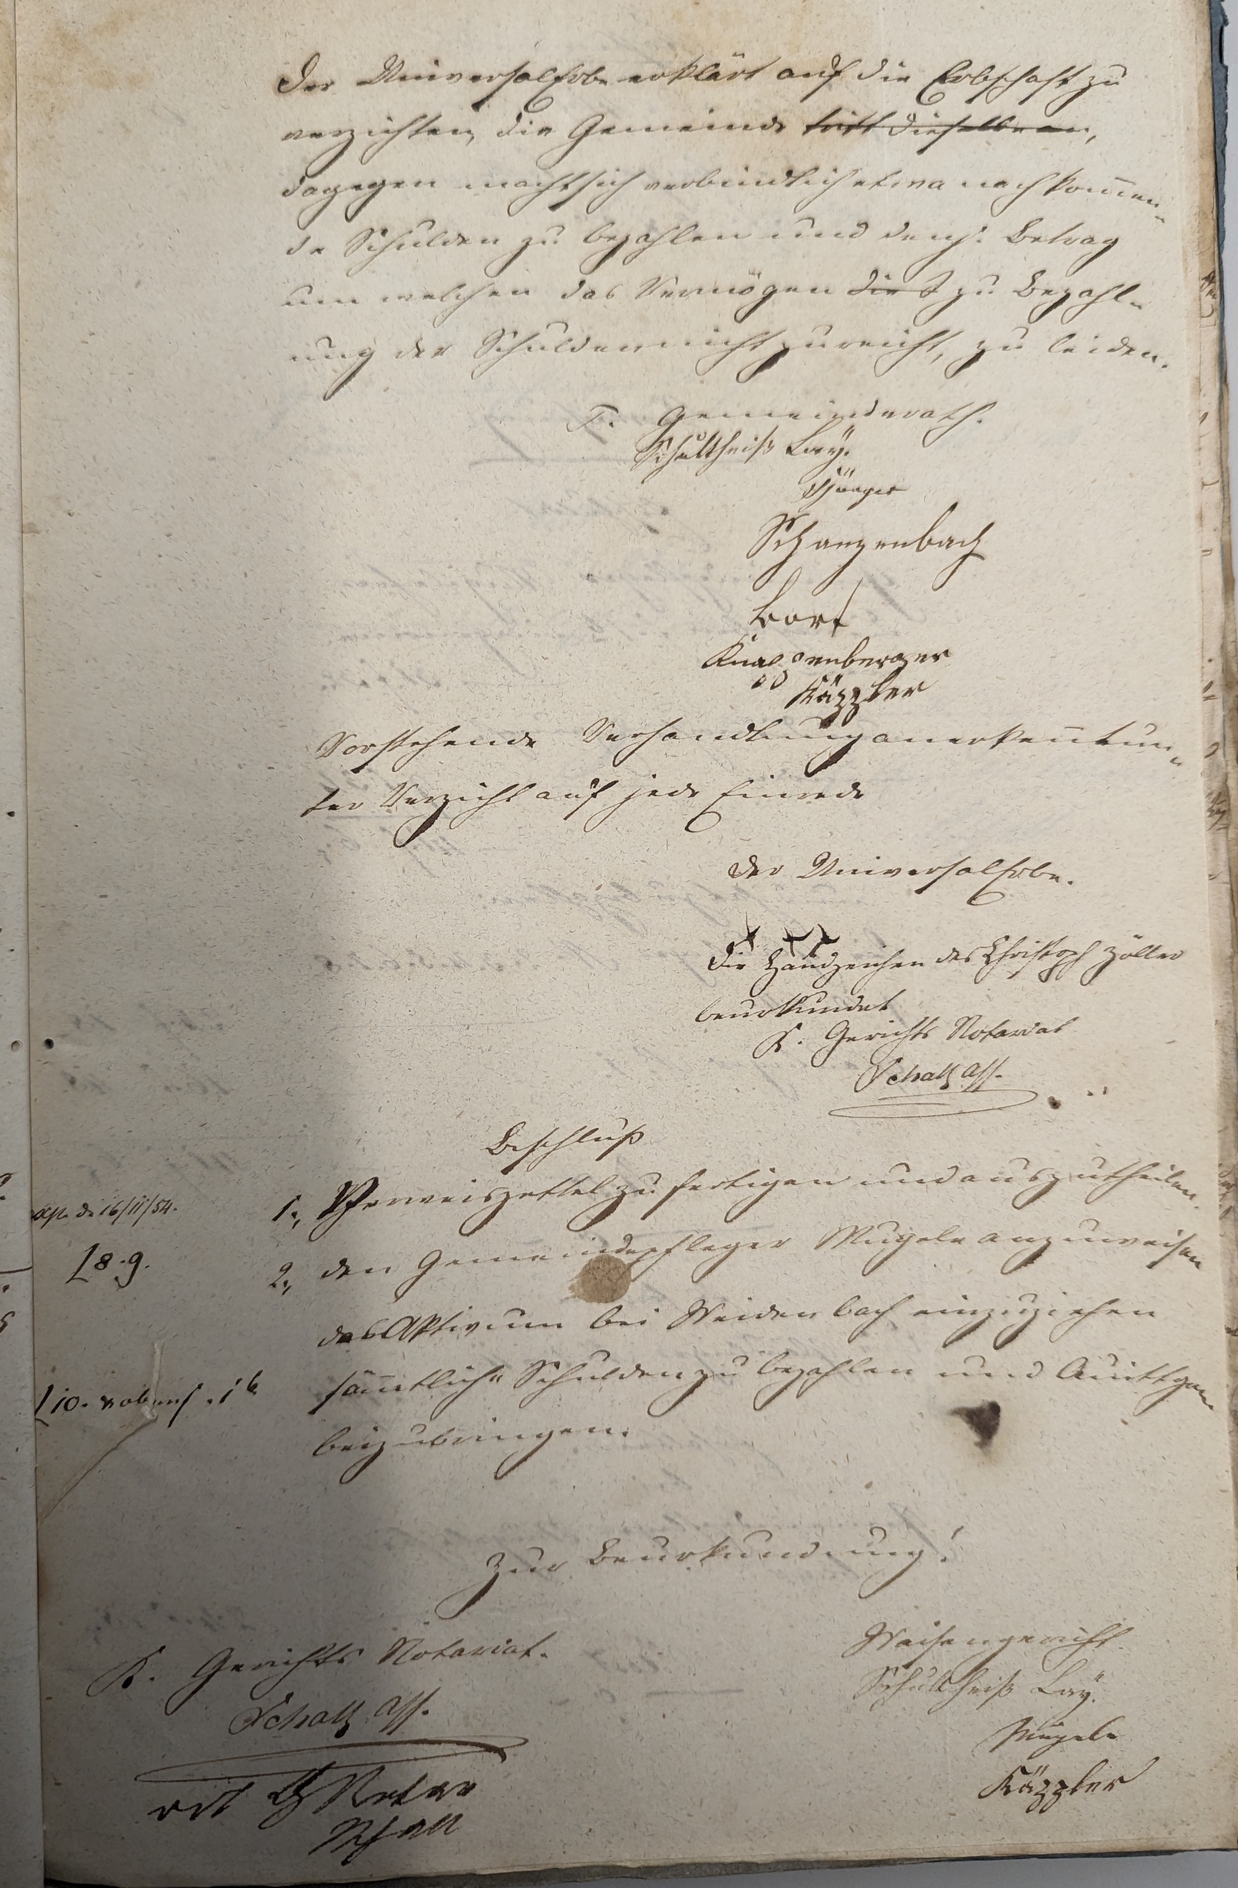 Der Universalerbe erklärt auf die Erbschaft zu
verzichten, die Gemeinde tritt dieselbe an,
dagegen macht sich verbindlich etwa nachkom̅en-
de Schulden zu bezahlen und denj. Betrag
um welchen das Vermögen die S zu Bezahl-
ung der Schulden nicht zureicht, zu leiden.
T. Gemeinderath.
Schultheiß Laÿ.
Schanzenbach
Knappenberger
Käzzler
Vorstehende Verhandlung anerken̅t un-
ter Verzicht auf jede Einrede
Der Universalerbe.
Die Handzeichen des Christoph Zöller
beurkundet
K. Gerichts Notariat
Schall Ass.
Beschluß
1., Verweiszettel zu fertigen und auszutheilen.
Exp. d. 16/11/54.
2., den Gemeindepfleger Mugele anzuweisen
[8.9.
das Aktivum bei Weidenbach einzuziehen
sämtliche Schulden zu bezahlen und Quittgen
[10.
beizubringen.
Zur Beurkundung!
K. Gerichts Notariat.
Schall Ass.
Waisengericht.
Schultheiß Laÿ.
Mugele
Käzzler
vdt